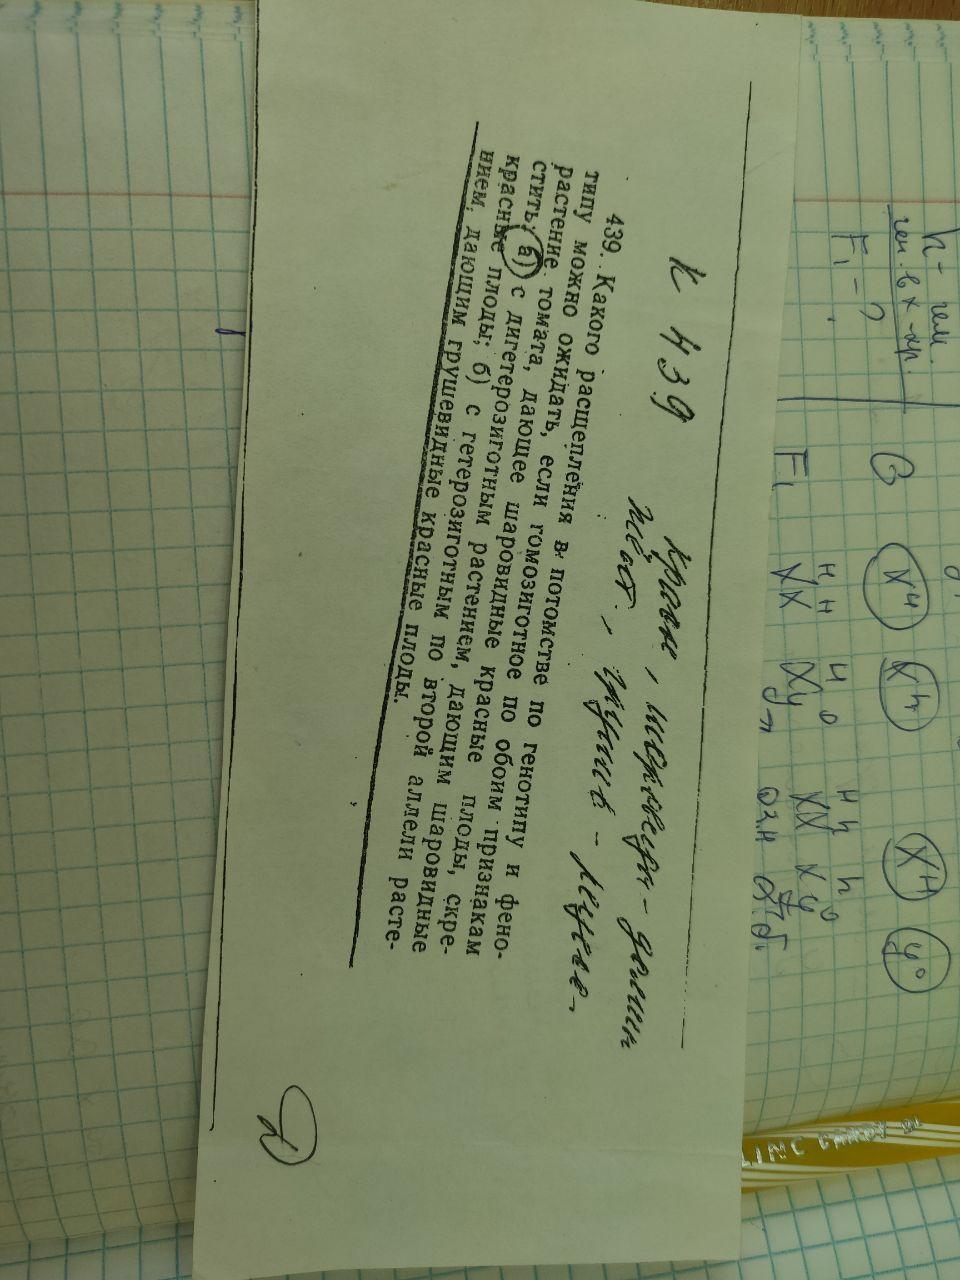 К 439
красн, шаровидн - домин
желт, грушев - рецесс-
439. Какого расщепления в потомстве по генотипу и фено-
типу можно ожидать, если гомозиготное по обоим признакам
растение томата, дающее шаровидные красные плоды, скре-
стить: а) с дигетерозиготным растением, дающим шаровидные
красные плоды; б) с гетерозиготным по второй аллели расте-
нием, дающим грушевидные красные плоды.
2
h - гем.
F₁ - ?
G XH Xh XH y°
F₁ XHXH XHy° XHXh Xhy°
LINC